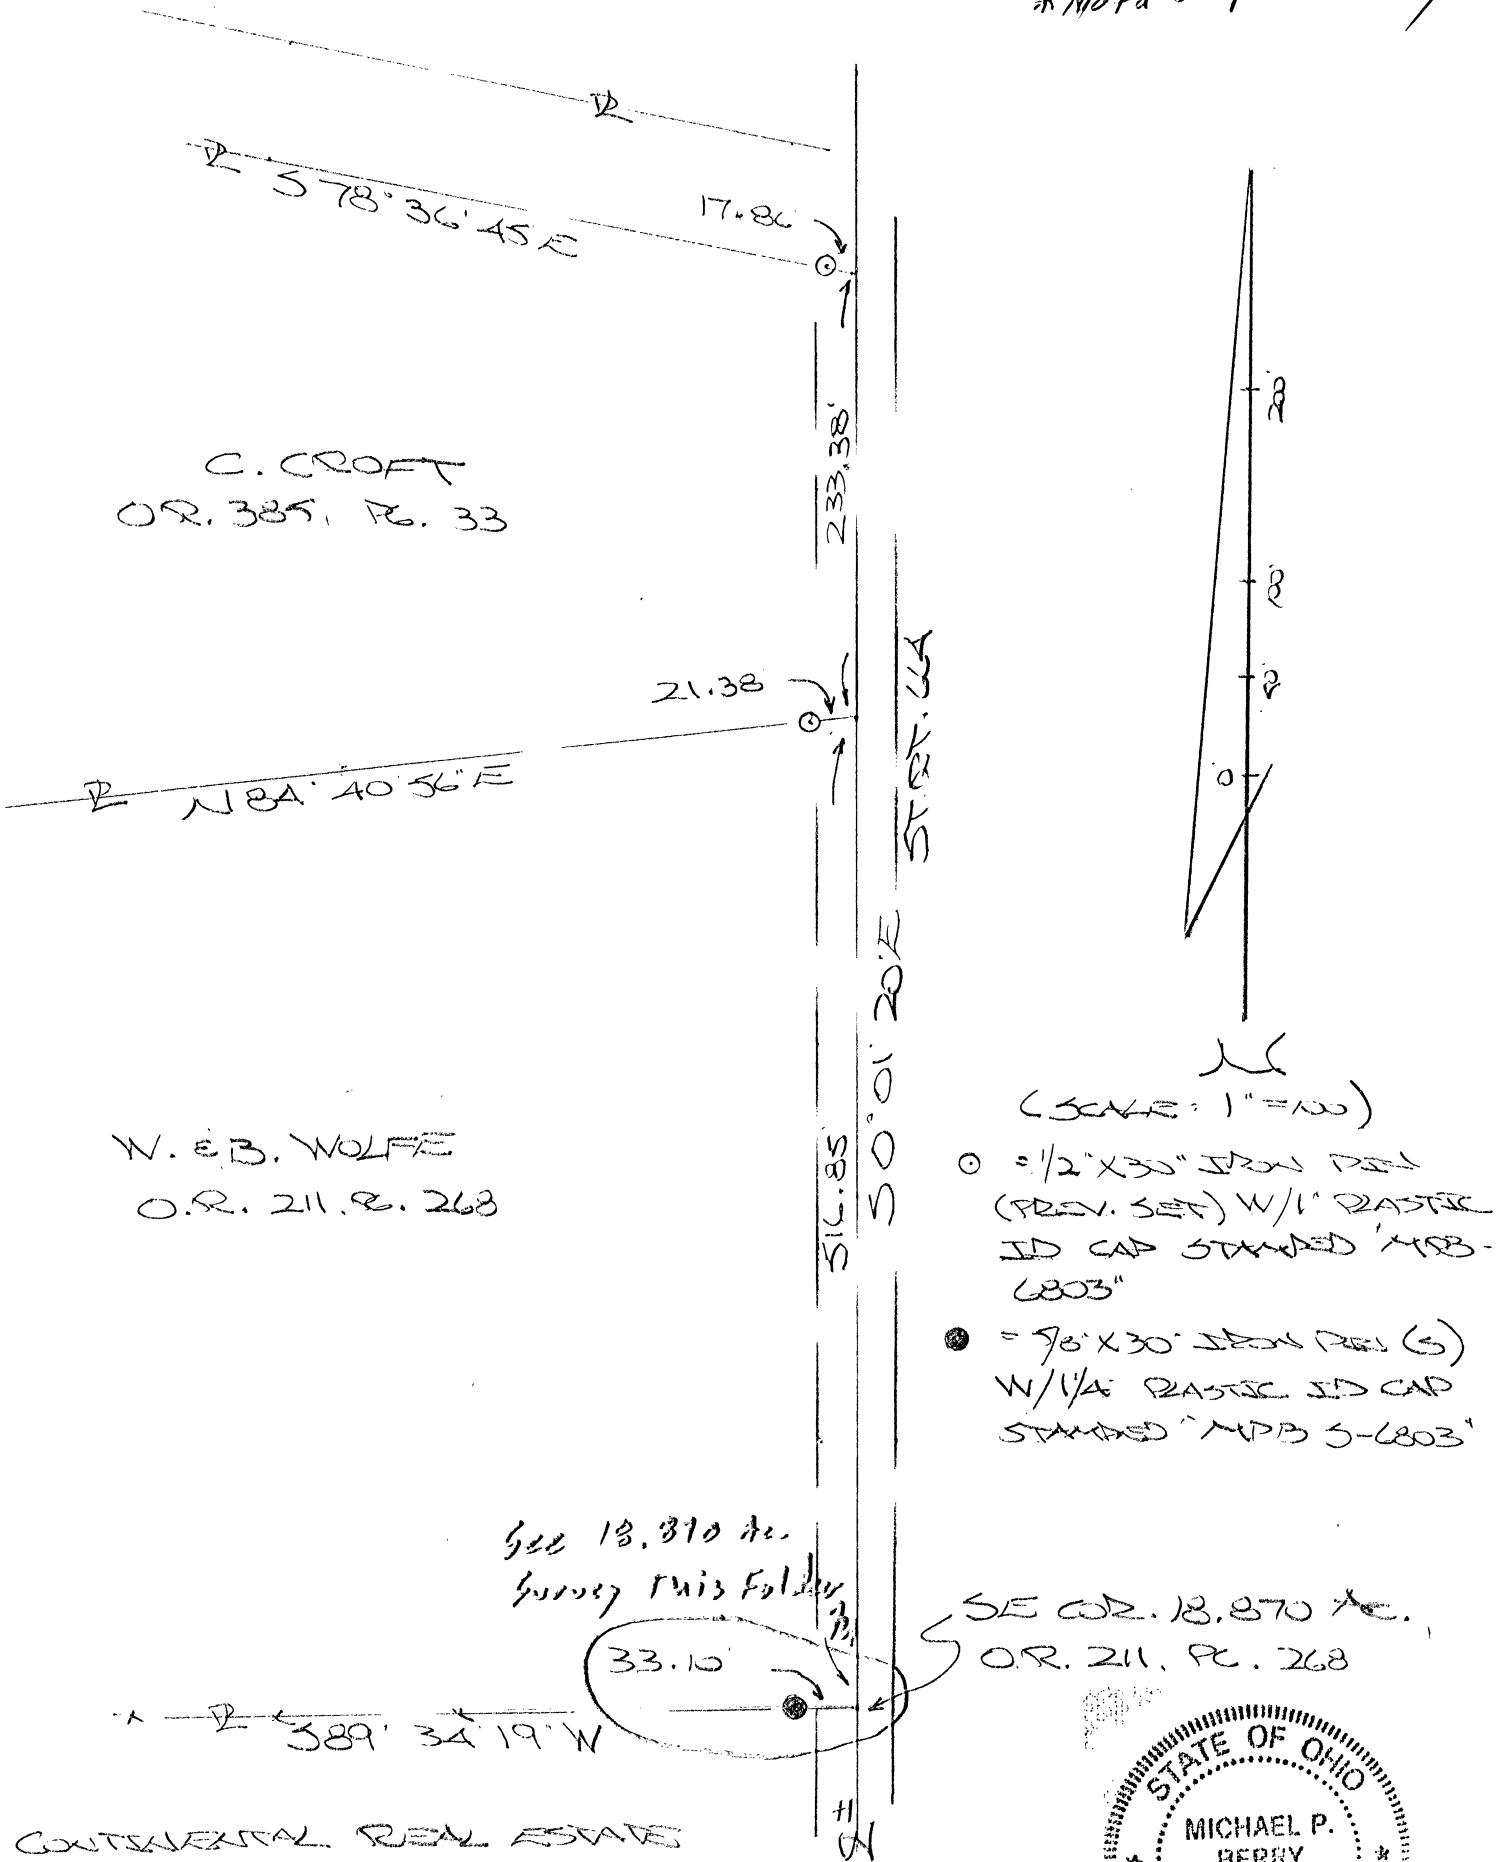 S 78° 36' 45 E
17.86
C. CROFT
O.R. 385, PG. 33
233.38'
200
100
50
0
21.38
ST. RT. 66A
N 84° 40' 56" E
S 0° 01' 20" E
516.85
W. & B. WOLFE
O.R. 211. PG. 268
N
(SCALE: 1" = 100')
= 1/2" X 30" IRON PIN
(PREV. SET) W/1" PLASTIC
ID CAP STAMPED "MPB-
6803"
= 5/8" X 30" IRON PIN (S)
W/1 1/4" PLASTIC ID CAP
STAMPED "MPB S-6803"
See 18.870 Ac.
Survey this Folder
33.10'
SE COR. 18.870 AC.
O.R. 211. PG. 268
S 89° 34' 19" W
CONTINENTAL REAL ESTATE
STATE OF OHIO
MICHAEL P.
BERRY